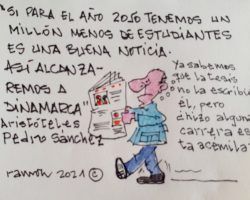 "SI PARA EL AÑO 2050 TENEMOS UN
MILLÓN MENOS DE ESTUDIANTES
ES UNA BUENA NOTICIA.
ASÍ ALCANZA-
REMOS A
DINAMARCA"
Aristóteles
Pedro Sánchez
Ya sabemos
que la tesis
no la escribió
él, pero
hizo alguna
carrera es
ta acémila?
ramón 2021 ©